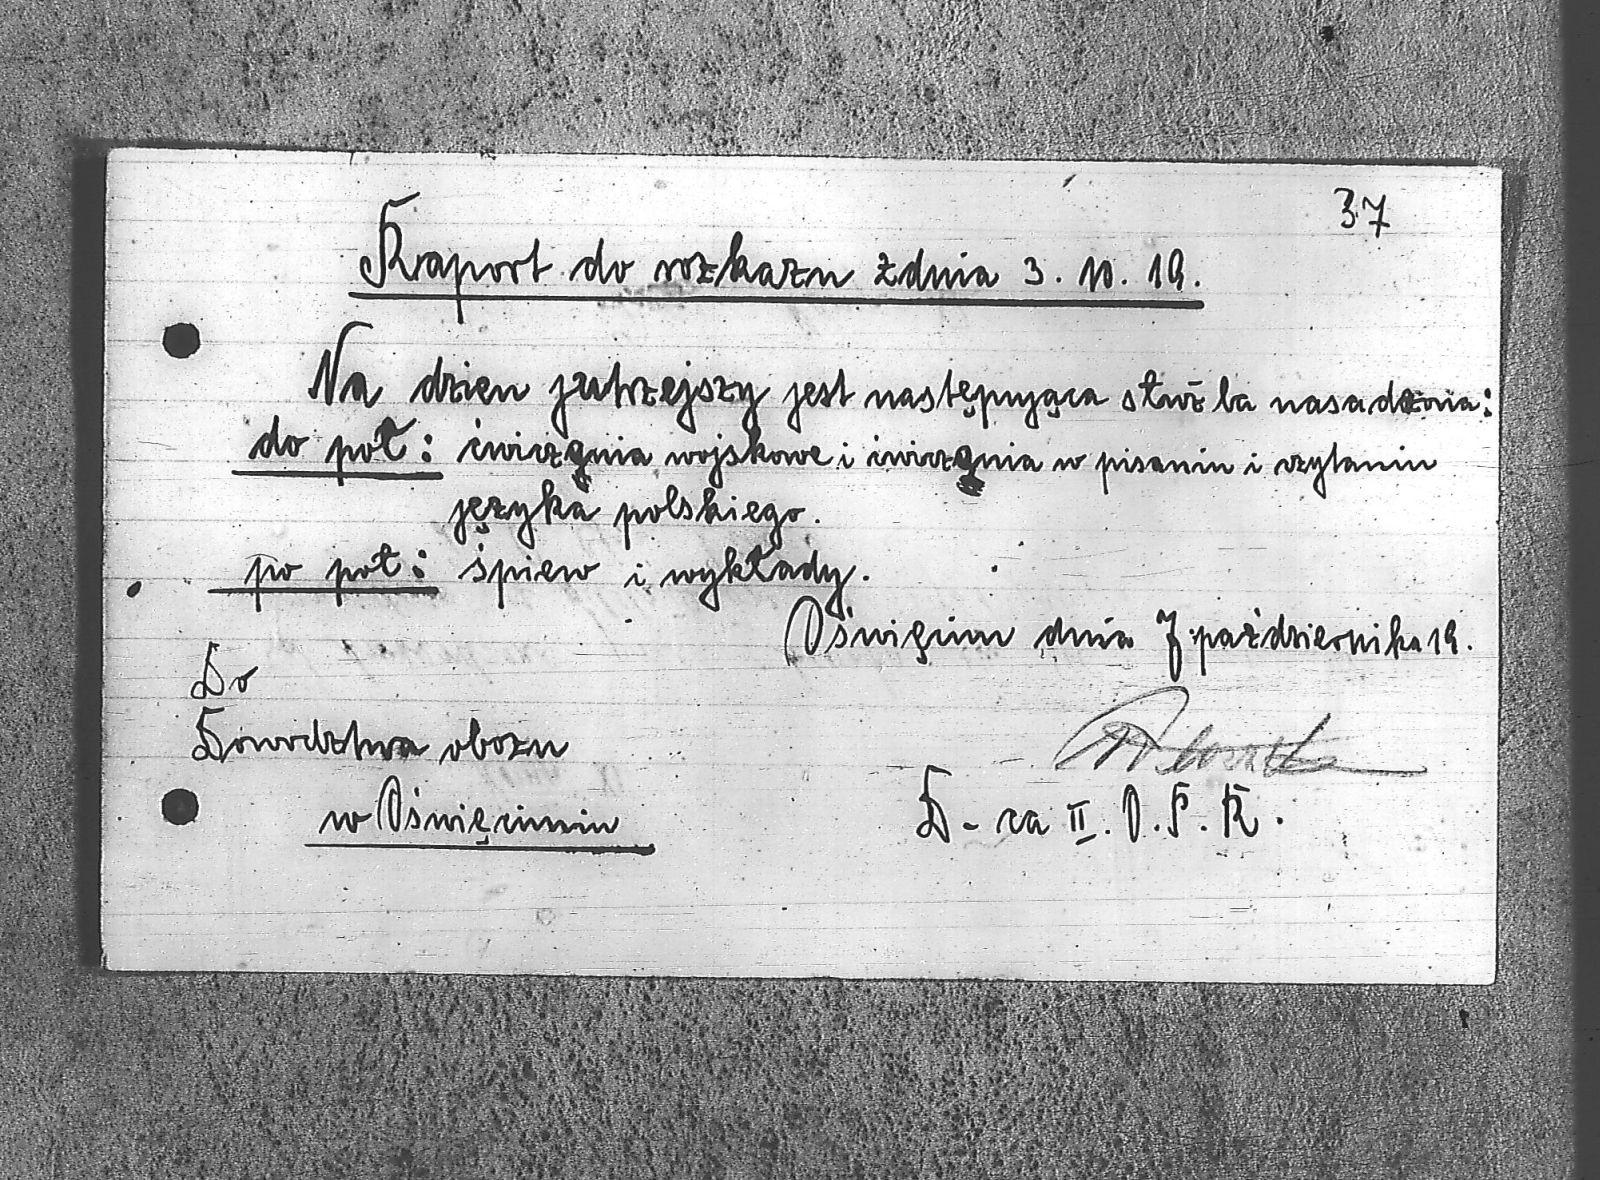 37
Raport do rozkazu z dnia 3. 10. 19.
Na dzien jutrzejszy jest następująca służba nasadzona:
do poł: ćwiczęnia wojskowe i ćwiczęnia w pisaniu i czytaniu
języka polskiego.
po poł: śpiew i wykłady.
Oświęcim dnia 7 października 19.
Do
Dowodztwa obozu
w Oświęcimiu
D-ca II. O. P. R.